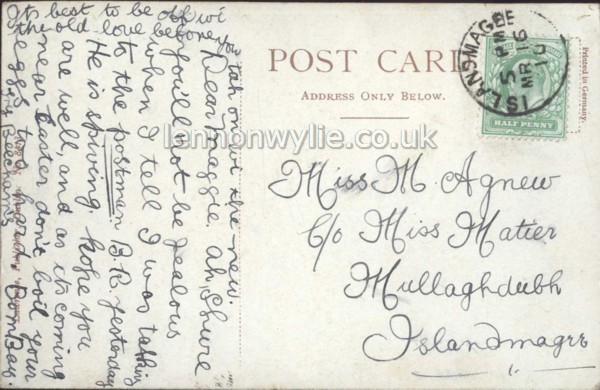 Its best to be off wi
the old love before you tak on wi the new.
Dear Maggie. Ah, Shure
you'll not be jealous
when I tell I was talking
to the postman B.R. yesterday
He is spiving. hope you
are well, and as its coming
near Easter don't boil your
eggs too hard
Beecham's Bombay
POST CARD
ADDRESS ONLY BELOW.
Printed in Germany.
ISLANDMAGEE
5 PM
MR 16
10
HALF PENNY
lennonwylie.co.uk
Miss M. Agnew
C/o Miss Matier
Mullaghdubh
Islandmagee